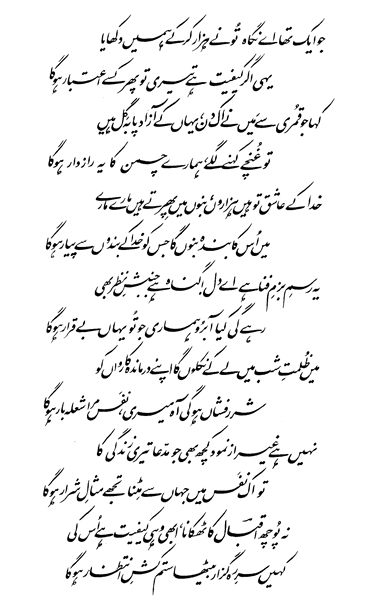 جو ایک تھا اے نگاہ تُو نے ہزار کرکے ہمیں دکھایا
یہی اگر کیفیت ہے تیری تو پھر کسے اعتبار ہوگا
کہا جو قُمری سے میں نے اک دن، یہاں کے آزاد پابہ گِل ہیں
تو غُنچے کہنے لگے، ہمارے چمن کا یہ رازدار ہوگا
خدا کے عاشق تو ہیں ہزاروں، بنوں میں پھرتے ہیں مارے مارے
میں اُس کا بندہ بنوں گا جس کو خدا کے بندوں سے پیار ہوگا
یہ رسمِ بزمِ فنا ہے اے دل! گناہ ہے جنبشِ نظر بھی
رہے گی کیا آبرو ہماری جو تُو یہاں بے قرار ہوگا
میں ظُلمتِ شب میں لے کے نکلوں گا اپنے درماندہ کارواں کو
شررفشاں ہوگی آہ میری، نفَس مرا شعلہ بار ہوگا
نہیں ہے غیر از نمود کچھ بھی جو مدّعا تیری زندگی کا
تو اک نفَس میں جہاں سے مِٹنا تجھے مثالِ شرار ہوگا
نہ پُوچھ اقبال کا ٹھکانا، ابھی وہی کیفیت ہے اُس کی
کہیں سرِ رہ گزار بیٹھا ستم کشِ انتظار ہوگا